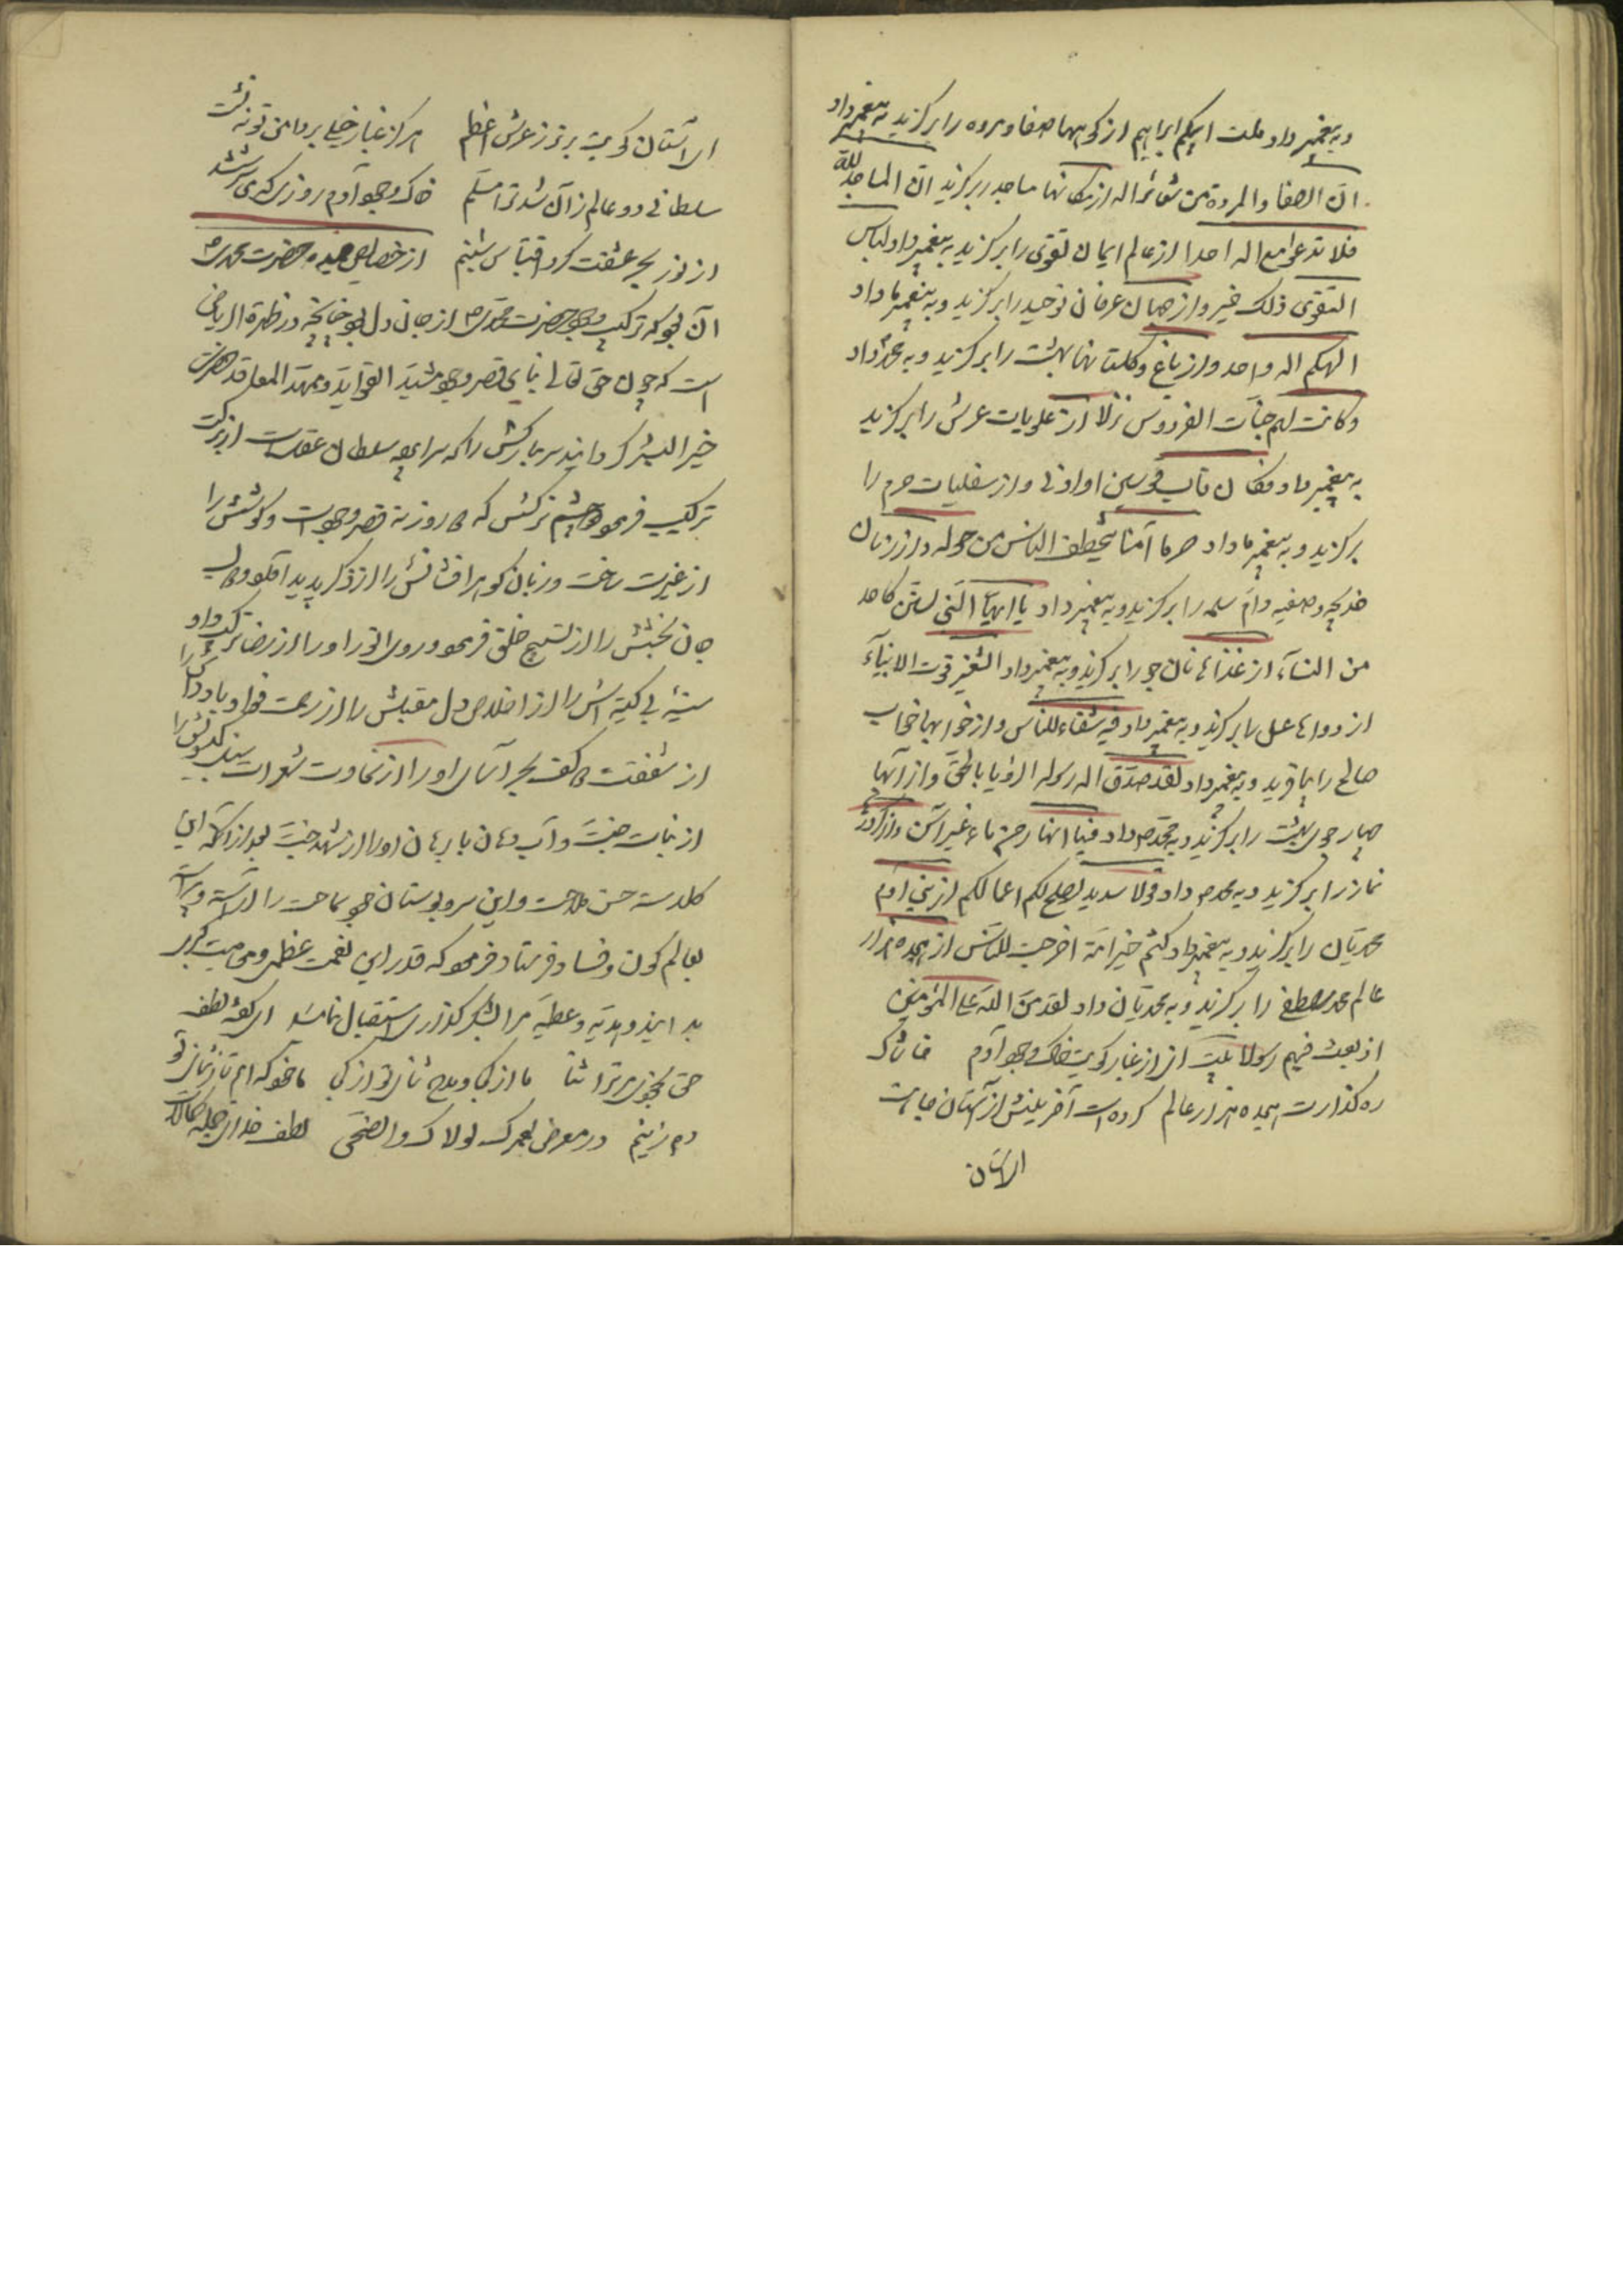 و به پیغمبر داد ملت ابیکم ابراهیم از کوهها صفا و مروه را برگزید به پیغمبر داد
ان الصفا والمروة من شعائر اله از مکانها مساجد را برگزید ان المساجد لله
فلا تدعوا مع اله احدا از عالم ایمان تقوی را برگزید به پیغمبر داد و لباس
التقوی ذلک خیر و از جهان عرفان توحید را برگزید و به پیغمبر ما داد
الهکم اله واحد و از باغ و گلستانها بهشت را برگزید و به محمد داد
و کانت لهم جنات الفردوس نزلا از علویات عرش را برگزید
به پیغمبر داد فکان قاب قوسین او ادنی و از سفلیات حرم را
برگزید و به پیغمبر ما داد حرما آمنا یتخطف الناس من حوله و از زنان
خدیجه و صفیه و ام سلمه را برگزید و به پیغمبر داد یا ایها النبی لستن کاحد
من النساء از غذاها نان جو را برگزید و به پیغمبر داد الشعیر قوت الانبیآء
از دواها عسل را برگزید و به پیغمبر داد فیه شفاء للناس و از خوابها خواب
صالح را بیافرید و به پیغمبر داد لقد صدق اله رسوله الرؤیا بالحق و از آبها
چهار جوی بهشت را برگزید و به محمد ص داد فیها انهار من ماء غیر آسن و از
نماز را برگزید و به محمد ص داد قولا سدیدا یصلح لکم اعمالکم از بنی آدم
محمدیان را برگزید و به پیغمبر داد کنتم خیر امة اخرجت للناس از هیجده هزار
عالم محمد مصطفی را برگزید و به محمدیان داد لقد من الله علی المؤمنین
اذ بعث فیهم رسولا بیت ای از غبار کویت خاک وجود آدم خاشاک
ره گذارت هیجده هزار عالم کرده است آفرینش از آستان
ای آستان
ای آستان کویت برتر ز عرش اعظم هرگز غبار خیلی بر دامن تو ننشست
سلطانی دو عالم ز آن شد ترا مسلم خاک وجود آدم روزی که می سرشتند
از نور بحر عشقت کرد اقتباس شبنم از خصایص حضرت محمدی ص
آن بود که ترکیب وجود حضرت محمدی ص از جان و دل بود چنانچه در نظرة الریاض
است که چون حق تعالی بنای قصر وجود مشید القواید و ممهد المعاقد حضرت
خیر البشر گردانید سر مبارکش را که سلطان عقلست از برکت
ترکیب فرمود و چشم نرگسش که روزنهٔ قصر وجودست و گوشش را
از غیرت ساخت و زبان گوهر افشانش را از ذکر پدید آورد و لب
جان بخشش را از تسبیح خلق فرمود و روی انور او را از رضا ترکیب داد
سینهٔ بی کینه اش را از اخلاص دل مقبلش را از رحمت
از شفقت و کف بحر آسای او را از سخاوت شعرات
از نبات جنت و آب دهان اورا از شهد جنت بعد از آنکه این
گلدسته حسن ملاحت و این سرو بوستان سماحت را آراسته
بعالم کون و فساد فرستاد و فرمود که قدر این نعمت عظمی و موهبت کبری
بدانید و هدیه و عطیهٔ مرا بشکر گذاری استقبال نمائید ای گفته لطف
حق بخودی ترا ثنا ما از کجا و مدح و ثنای تو از کجا ما خود که ایم تا ز ثنای تو
دم زنیم در معرض لعمرک لولاک والضحی لطف خدای جمله کمالات